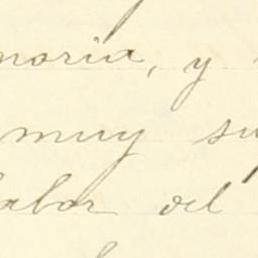 moria, y
muy su
labor del